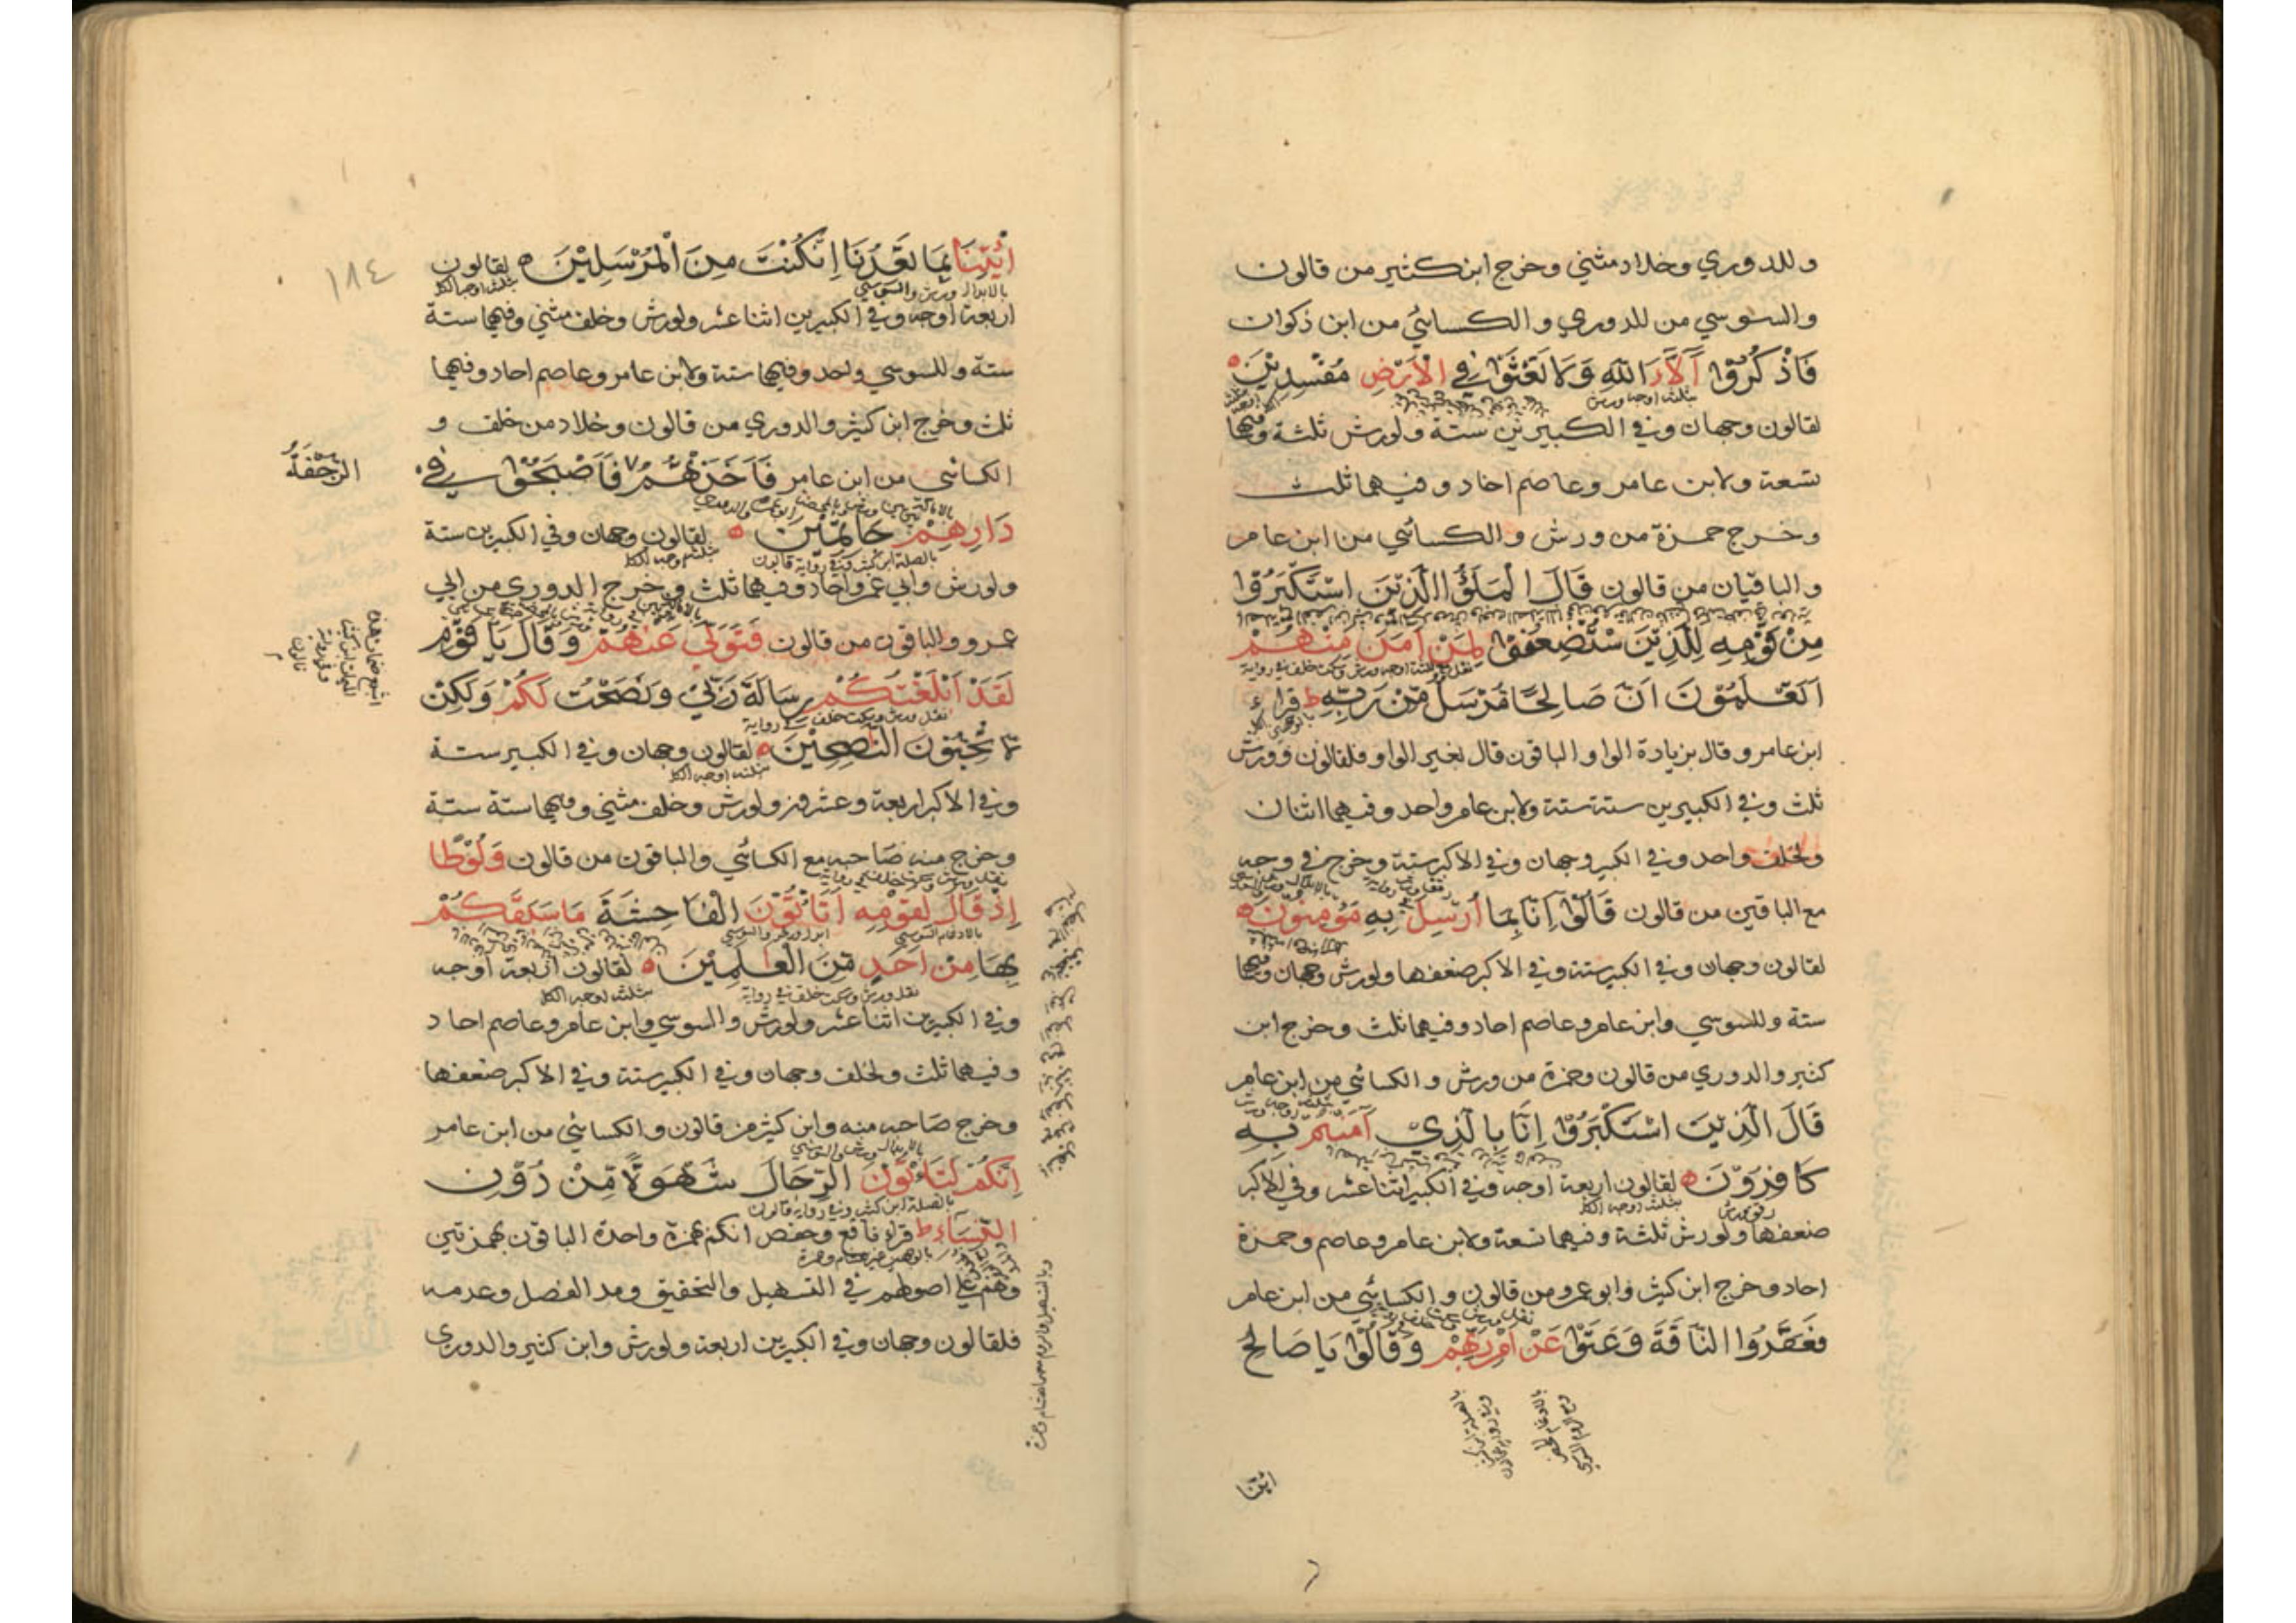 وللدوري وخلاد مثني وخرج ابن كثير من قالون
والسوسي من للدوري والكسائي من ابن ذكوان
فَاذْكُرُوْا آلَآءَ اللّٰهِ وَلَا تَعْثَوْا فِي الْاَرْضِ مُفْسِدِيْنَ
بثلثة اوجه ورش
لقالون وجهان وفي الكبيرين ستة ولورش ثلثة وفيها
تسعة ولابن عامر وعاصم احاد وفيهما ثلث
وخرج حمزة من ورش والكسائي من ابن عامر
والباقيان من قالون قَالَ الْمَلَؤُا الَّذِيْنَ اسْتَكْبَرُوْا
مِنْ قَوْمِهِ لِلَّذِيْنَ سْتُضْعِفُوْا لِمَنْ اٰمَنَ مِنْهُمْ
اَتَعْلَمُوْنَ اَنَّ صَالِحًا مُرْسَلٌ مِّنْ رَبِّهِ ط قراء
ابن عامر وقال بزيادة الواو الباقون قال بغير الواو فلقالون وورش
ثلث وفي الكبيرين ستة ستة ولابن عامر واحد وفيهما اثنان
ولخلف واحد وفي الكبير وجهان وفي الاكبر ستة وخرج في وجه
مع الباقين من قالون قَالُوْا اِنَّا بِمَا اُرْسِلَ بِهِ مُؤْمِنُوْنَ
لقالون وجهان وفي الكبير ستة وفي الاكبر ضعفها ولورش وجهان وفيها
ستة وللسوسي وابن عامر وعاصم احاد وفيهما ثلث وخرج ابن
كثير والدوري من قالون وحمزة من ورش والكسائي من ابن عامر
قَالَ الَّذِيْنَ اسْتَكْبَرُوْا اِنَّا بِالَّذِيْ آمَنْتُمْ بِهِ
كَافِرُوْنَ لقالون اربعة اوجه وفي الكبير اثنا عشر وفي الاكبر
بثلثة اوجه الكل
ضعفها ولورش ثلثة وفيهما تسعة ولابن عامر وعاصم وحمزة
احاد وخرج ابن كثير وابو عمرو من قالون والكسائي من ابن عامر
فَعَقَرُوا النَّاقَةَ وَعَتَوْا عَنْ اَمْرِ رَبِّهِمْ وَقَالُوْا يَا صَالِحُ
ائتنا
١٨٤
ائْتِنَا بِمَا تَعِدُنَا اِنْ كُنْتَ مِنَ الْمُرْسَلِيْنَ لقالون
بالابدال ورش والسوسي بثلثة اوجه الكل
اربعة اوجه وفي الكبيرين اثنا عشر ولورش وخلف مثني وفيهما ستة
ستة وللسوسي واحد وفيها ستة ولابن عامر وعاصم احاد وفيهما
ثلث وخرج ابن كثير والدوري من قالون وخلاد من خلف و
الكسائي من ابن عامر فَاَخَذَتْهُمُ فَاَصْبَحُوْا فِي
الرَّجْفَةُ
دَارِهِمْ جَاثِمِيْنَ لقالون وجهان وفي الكبيرين ستة
بالصلة ابن كثير وفي رواية قالون بثلثة اوجه الكل
ولورش وابي عمرو احاد وفيهما ثلث وخرج الدوري من ابي
عمرو والباقون من قالون فَتَوَلّٰى عَنْهُمْ وَقَالَ يَا قَوْمِ
لَقَدْ اَبْلَغْتُكُمْ رِسَالَةَ رَبِّيْ وَنَصَحْتُ لَكُمْ وَلٰكِنْ
نقل ورش وسكت خلف في رواية
لَّا تُحِبُّوْنَ النّٰصِحِيْنَ لقالون وجهان وفي الكبير ستة
بثلثة اوجه الكل
وفي الاكبر اربعة وعشرون ولورش وخلف مثني وفيهما ستة ستة
وخرج منه صاحبه مع الكسائي والباقون من قالون وَلُوْطًا
اِذْ قَالَ لِقَوْمِهِ اَتَأْتُوْنَ الْفَاحِشَةَ مَا سَبَقَكُمْ
بالادغام السوسي ابدل ورش والسوسي
بِهَا مِنْ اَحَدٍ مِّنَ الْعٰلَمِيْنَ لقالون اربعة اوجه
نقل ورش وسكت خلف في رواية بثلثة اوجه الكل
وفي الكبيرين اثنا عشر ولورش والسوسي وابن عامر وعاصم احاد
وفيهما ثلث ولخلف وجهان وفي الكبير ستة وفي الاكبر ضعفها
وخرج صاحبه منه وابن كثير من قالون والكسائي من ابن عامر
بالابدال ورش والسوسي
اِنَّكُمْ لَتَأْتُوْنَ الرِّجَالَ شَهْوَةً مِّنْ دُوْنِ
بالصلة ابن كثير وفي رواية قالون
النِّسَآءِ ط قراء نافع وحفص انكم بهمزة واحدة الباقون بهمزتين
وهم علي اصولهم في التسهيل والتحقيق ومد الفصل وعدمه
فلقالون وجهان وفي الكبيرين اربعة ولورش وابن كثير والدوري